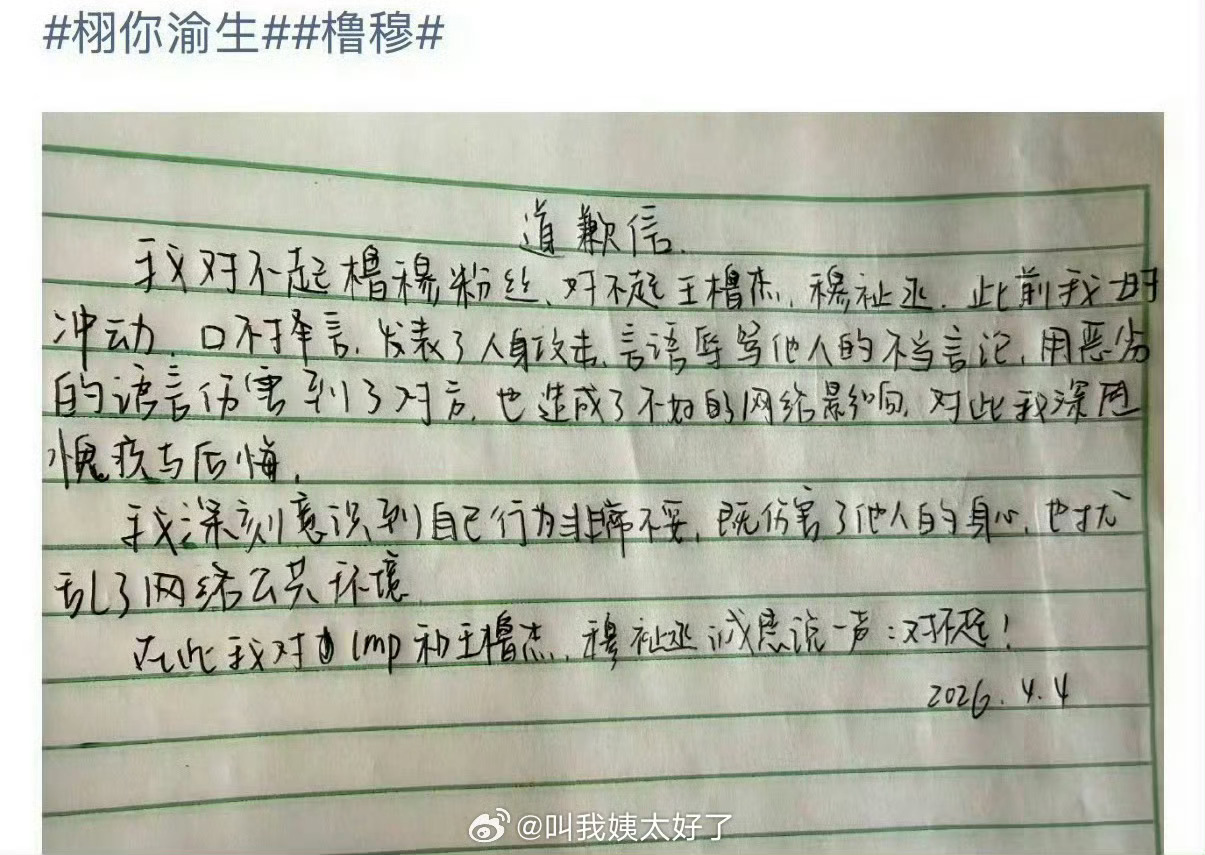 #栩你渝生##橹穆#
道歉信.
我对不起橹穆粉丝、对不起王橹杰、穆祉丞. 此前我一时
冲动、口不择言,发表了人身攻击、言语辱骂他人的不当言论,用恶劣
的语言伤害到了对方,也造成了不好的网络影响,对此我深思
愧疚与后悔.
我深刻意识到自己行为非常不妥,既伤害了他人的身心,也扰
乱了网络公共环境.
在此我对 lmp 和王橹杰、穆祉丞诚恳说一声:对不起!
2026.4.4
@叫我姨太好了